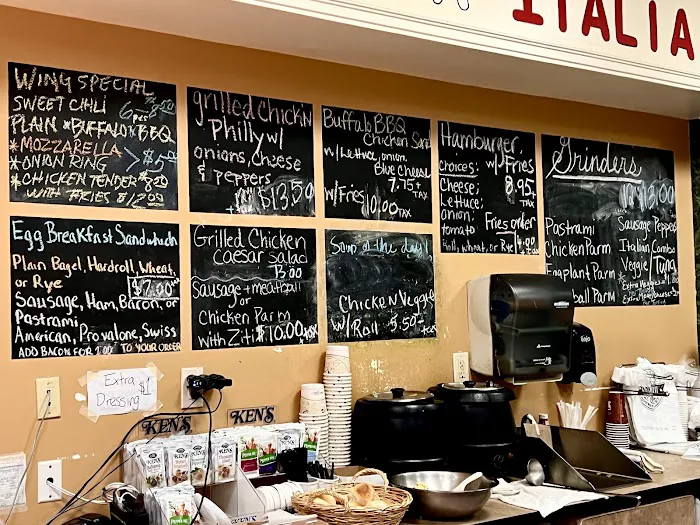 ITALIA
WING SPECIAL
SWEET CHILI
PLAIN *BUFFALO*BBQ
*MOZZARELLA
*ONION RING > $5
*CHICKEN TENDER
WITH FRIES
grilled Chick'n
Philly w/
onions, cheese
& peppers
$13.50
Buffalo BBQ
Chicken Sand
w/Lettuce, onion,
Blue Cheese
7.75+
TAX
w/Fries 10.00 TAX
Hamburger,
choices: w/Fries
Cheese; 8.95+
Lettuce; TAX
onion;
tomato Fries order
Roll, wheat, or Rye 4.00
Grinders
13.00
Pastrami
Chicken Parm
Eggplant Parm
Ball Parm
Sausage Peppers
Italian Combo
Veggie Tuna
Extra Veggies
Egg Breakfast Sandwhich
Plain Bagel, Hardroll, Wheat,
or Rye $7.00
Sausage, Ham, Bacon, or
Pastrami
American, Provalone, Swiss
ADD BACON FOR 2.00 TO YOUR ORDER
Grilled Chicken
caesar salad
13.00
Sausage + meatball
or
Chicken Parm
with Ziti $10.00
Soup of the day!
Chicken Veggie
w/ Roll 5.50
Extra $1
Dressing
KEN'S
KEN'S